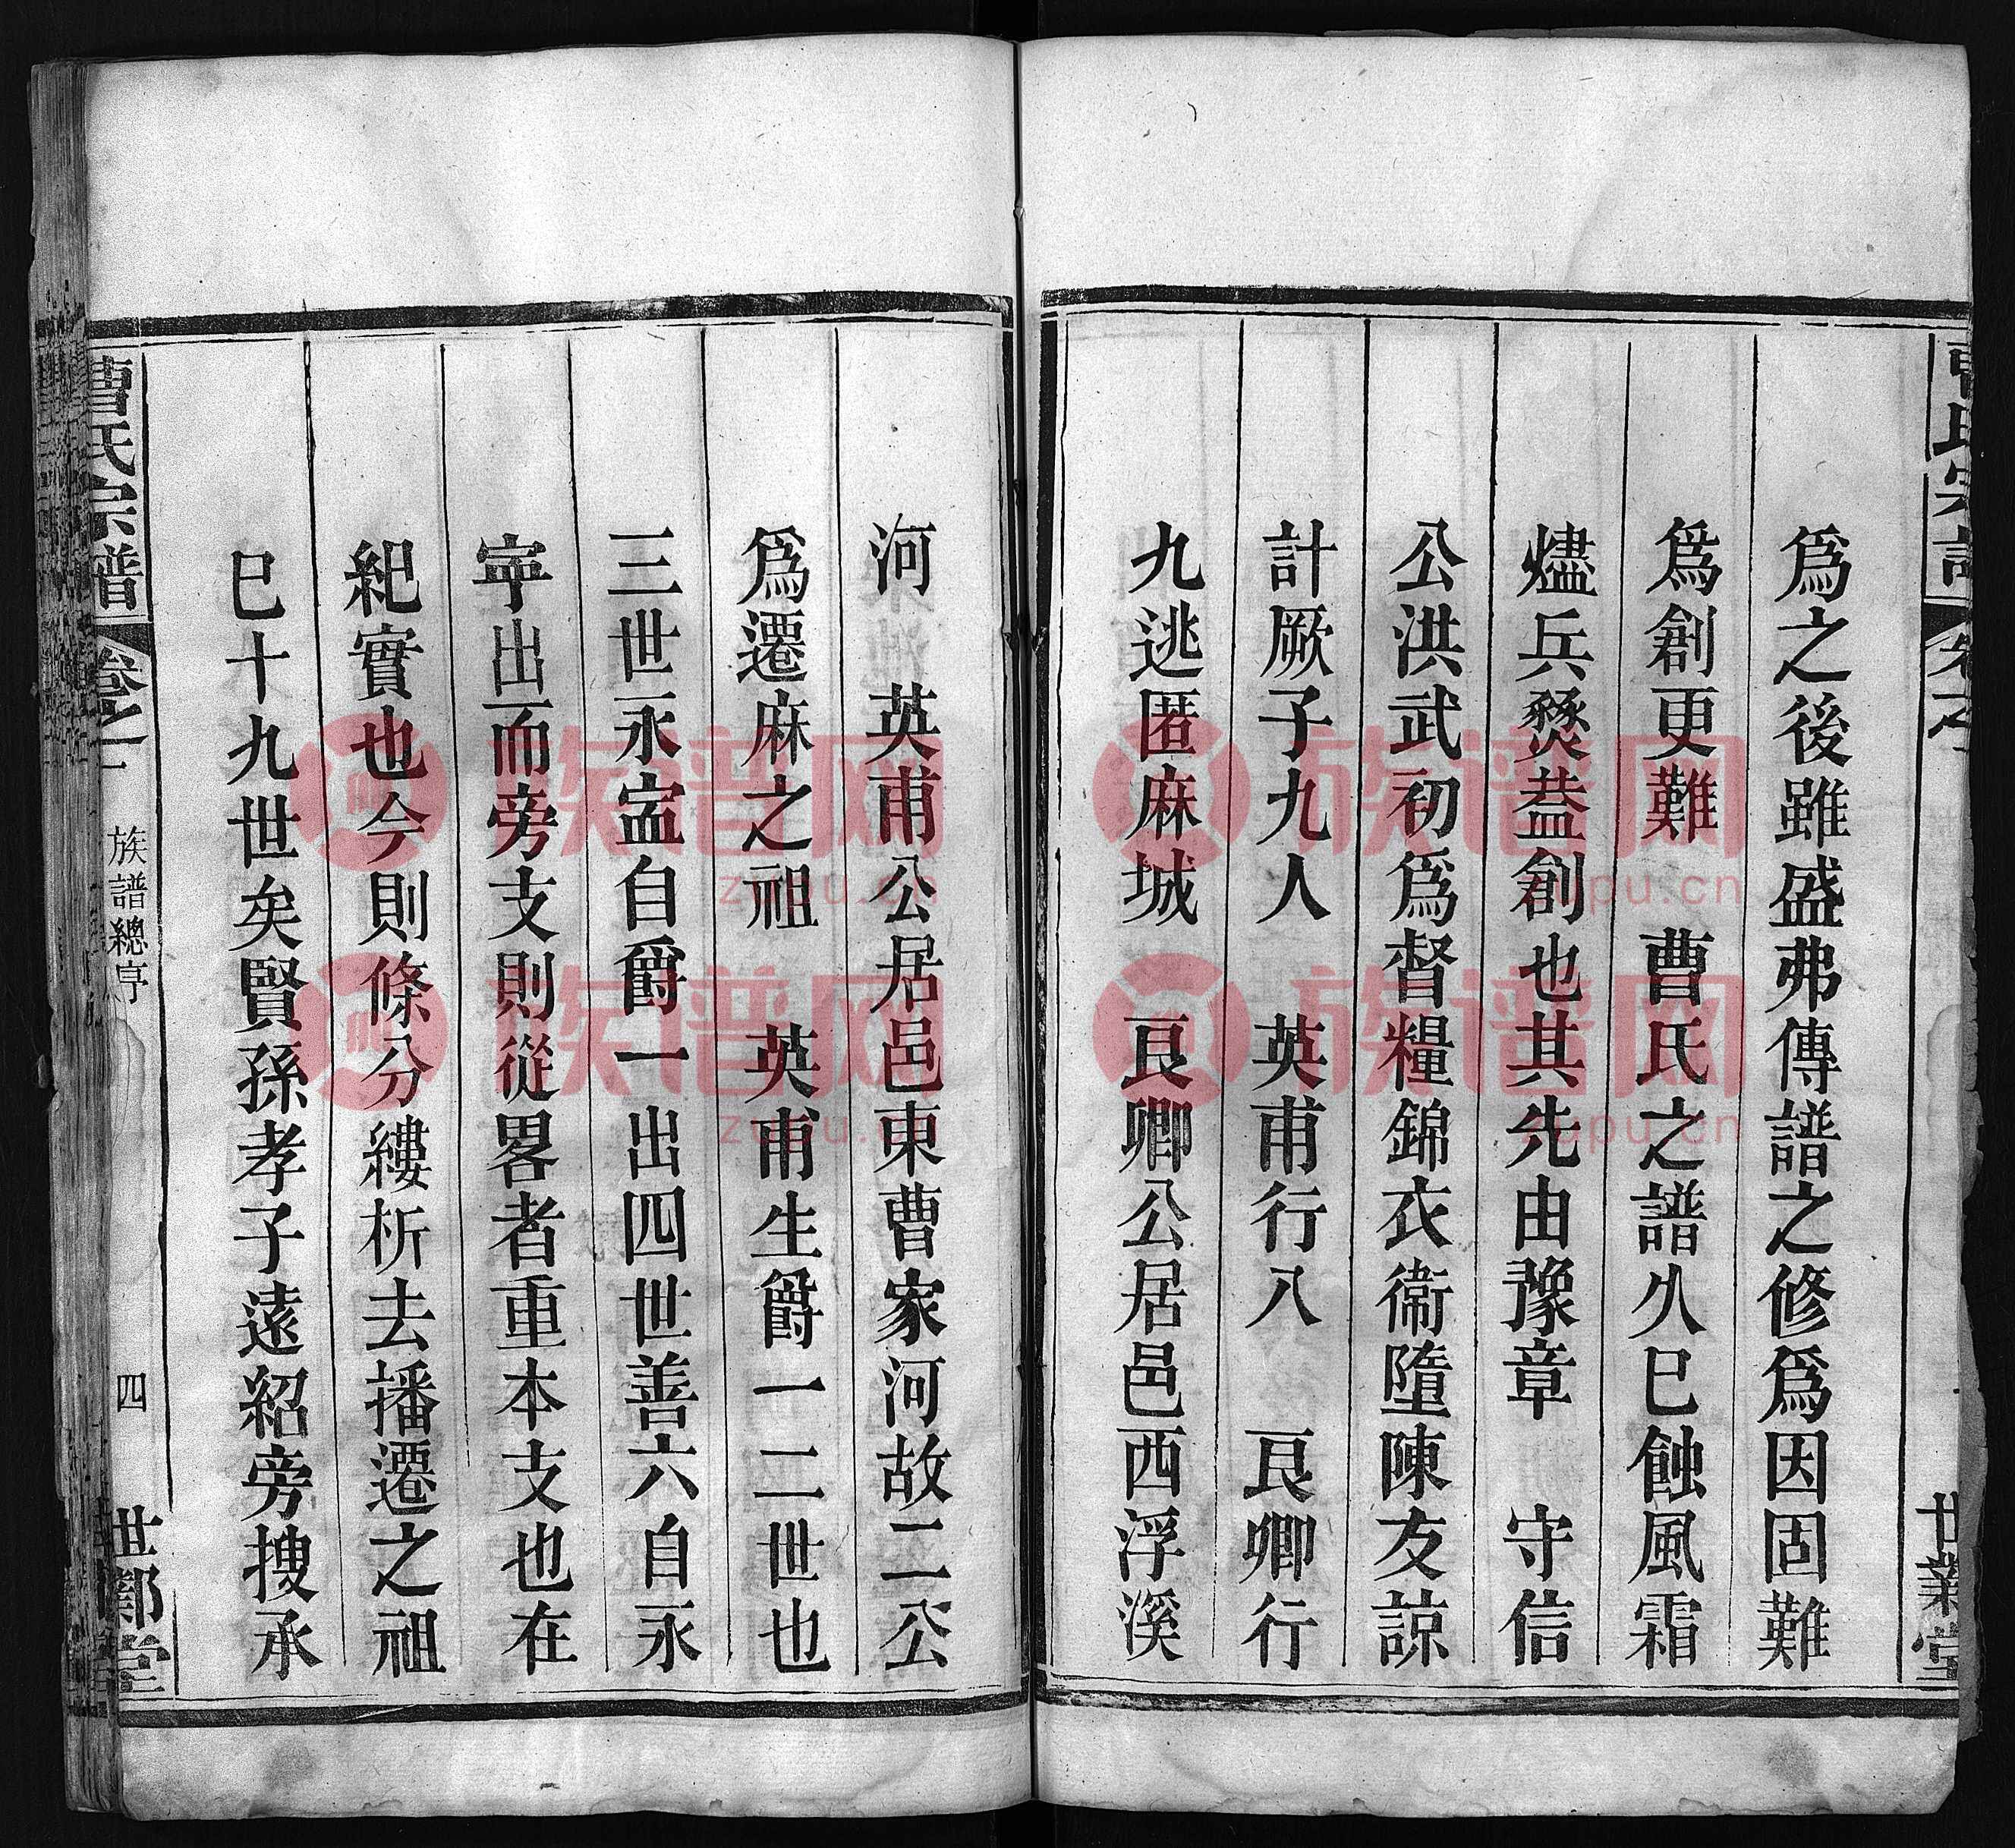 曹氏宗譜 卷之一 世業堂
爲之後雖盛弗傳譜之修爲因固難
爲創更難 曹氏之譜久巳蝕風霜
燼兵燹葢創也其先由豫章 守信
公洪武初爲督糧錦衣衞隨陳友諒
計厥子九人 英甫行八 良卿行
九逃匿麻城 良卿公居邑西浮溪
河 英甫公居邑東曹家河故二公
爲遷麻之祖 英甫生爵一二世也
三世永寍自爵一出四世善六自永
寍出而旁支則從畧者重本支也在
紀實也今則條分縷析去播遷之祖
巳十九世矣賢孫孝子遠紹旁搜承
曹氏宗譜 卷之一 族譜總序 四 世業堂
族谱网
zupu.cn
族谱网
zupu.cn
族谱网
zupu.cn
族谱网
zupu.cn